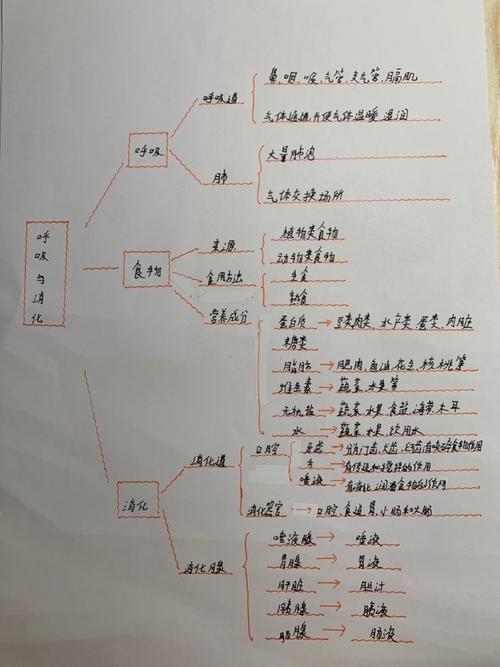 呼吸与消化
呼吸
呼吸道
鼻、咽、喉、气管、支气管、膈肌
气体通道,并使气体温暖、湿润
肺
大量肺泡
气体交换场所
食物
来源
植物类食物
动物类食物
食用方法
生食
熟食
营养成分
蛋白质 → 豆类肉类、水产类、蛋类、内脏
糖类
脂肪 → 肥肉、鱼油、花生、核桃等
维生素 → 蔬菜、水果等
无机盐 → 蔬菜、水果、食盐、海带、木耳
水 → 蔬菜、水果、饮用水
消化
消化道
口腔
牙齿 → 分门齿、犬齿、臼齿有咬碎食物作用
舌 → 有传送和搅拌的作用
唾液 → 有消化、润滑食物的作用
消化器官 → 口腔、食道、胃、小肠和大肠
消化腺
唾液腺 → 唾液
胃腺 → 胃液
肝脏 → 胆汁
胰腺 → 胰液
肠腺 → 肠液